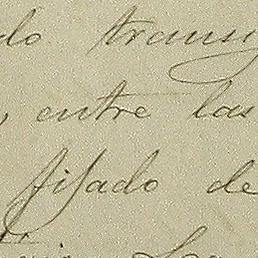 do trans
, entre las
fijado de